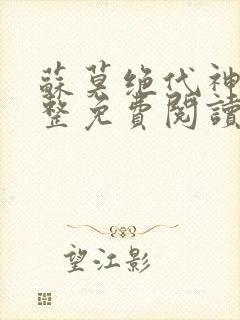 蘇莫绝代神
整免費閱讀
望江影